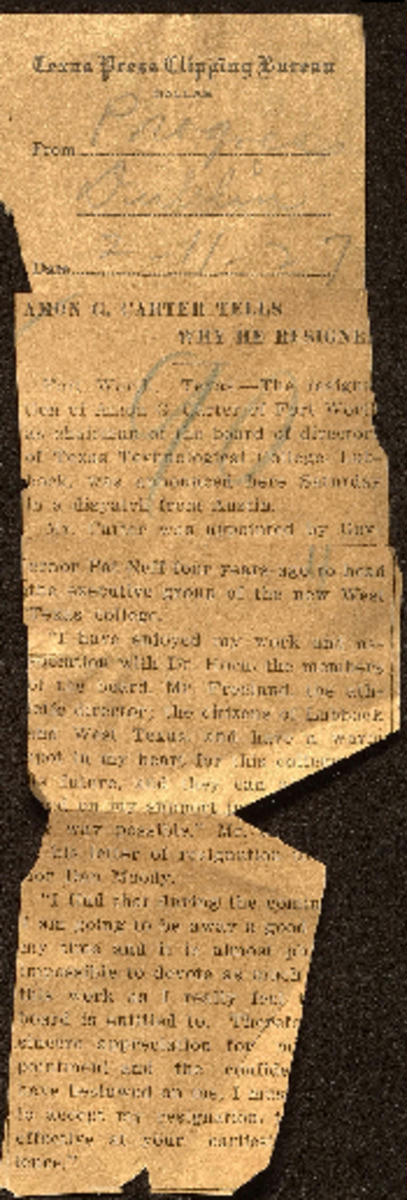 Texas Press Clipping Bureau
DALLAS
From
Date 2-11-27
AMON G. CARTER TELLS
WHY HE RESIGNE
Fort Worth, Texas—The resign
tion of Amon G. Carter of Fort Wor
as chairman of the board of director
of Texas Technological College, Lub-
bock, was announced here Saturday
in a dispatch from Austin.
Mr. Carter was appointed by Gov-
ernor Pat Neff four years ago to head
the executive group of the new West
Texas college.
"I have enjoyed my work and as-
sociation with Dr. Horn, the members
of the board, Mr. Freeland, the ath-
letic director; the citizens of Lubbock
and West Texas, and have a warm
spot in my heart for this
its future, and they can
on my support in
way possible," Mr.
his letter of resignation
Dan Moody.
"I find that during the comin
I am going to be away a good
my time and it is almost
impossible to devote as much
this work as I really feel
board is entitled to. Therefo
sincere appreciation for
pointment and the confide
have bestowed on me, I mus
to accept my resignation,
effective at your earliest
ience."